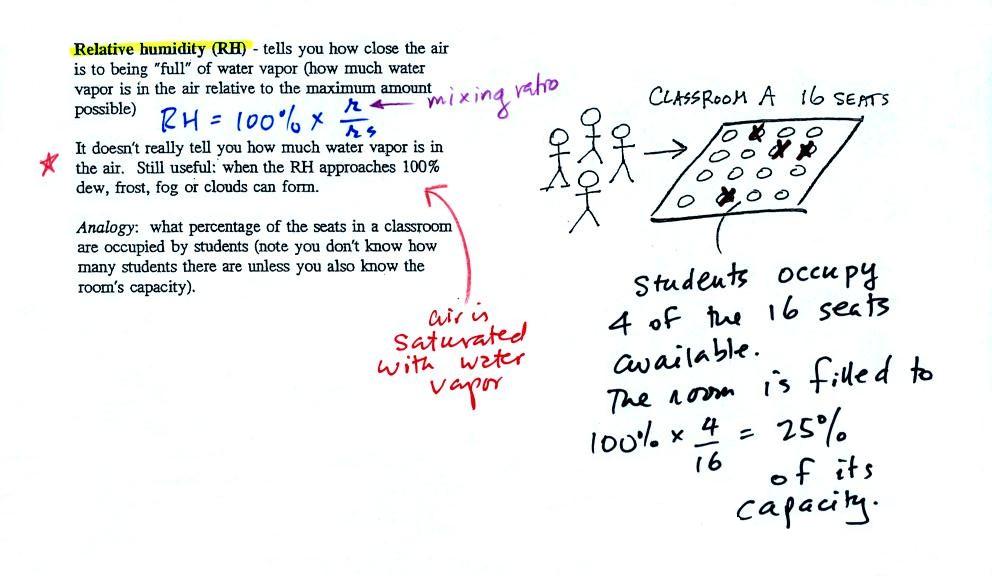 Relative humidity (RH) - tells you how close the air
is to being "full" of water vapor (how much water
vapor is in the air relative to the maximum amount
possible)
RH = 100% × r/rs
mixing ratio
It doesn't really tell you how much water vapor is in
the air. Still useful: when the RH approaches 100%
dew, frost, fog or clouds can form.
Analogy: what percentage of the seats in a classroom
are occupied by students (note you don't know how
many students there are unless you also know the
room's capacity).
air is
saturated
with water
vapor
CLASSROOM A 16 SEATS
Students occupy
4 of the 16 seats
available.
The room is filled to
100% × 4/16 = 25%
of its
capacity.